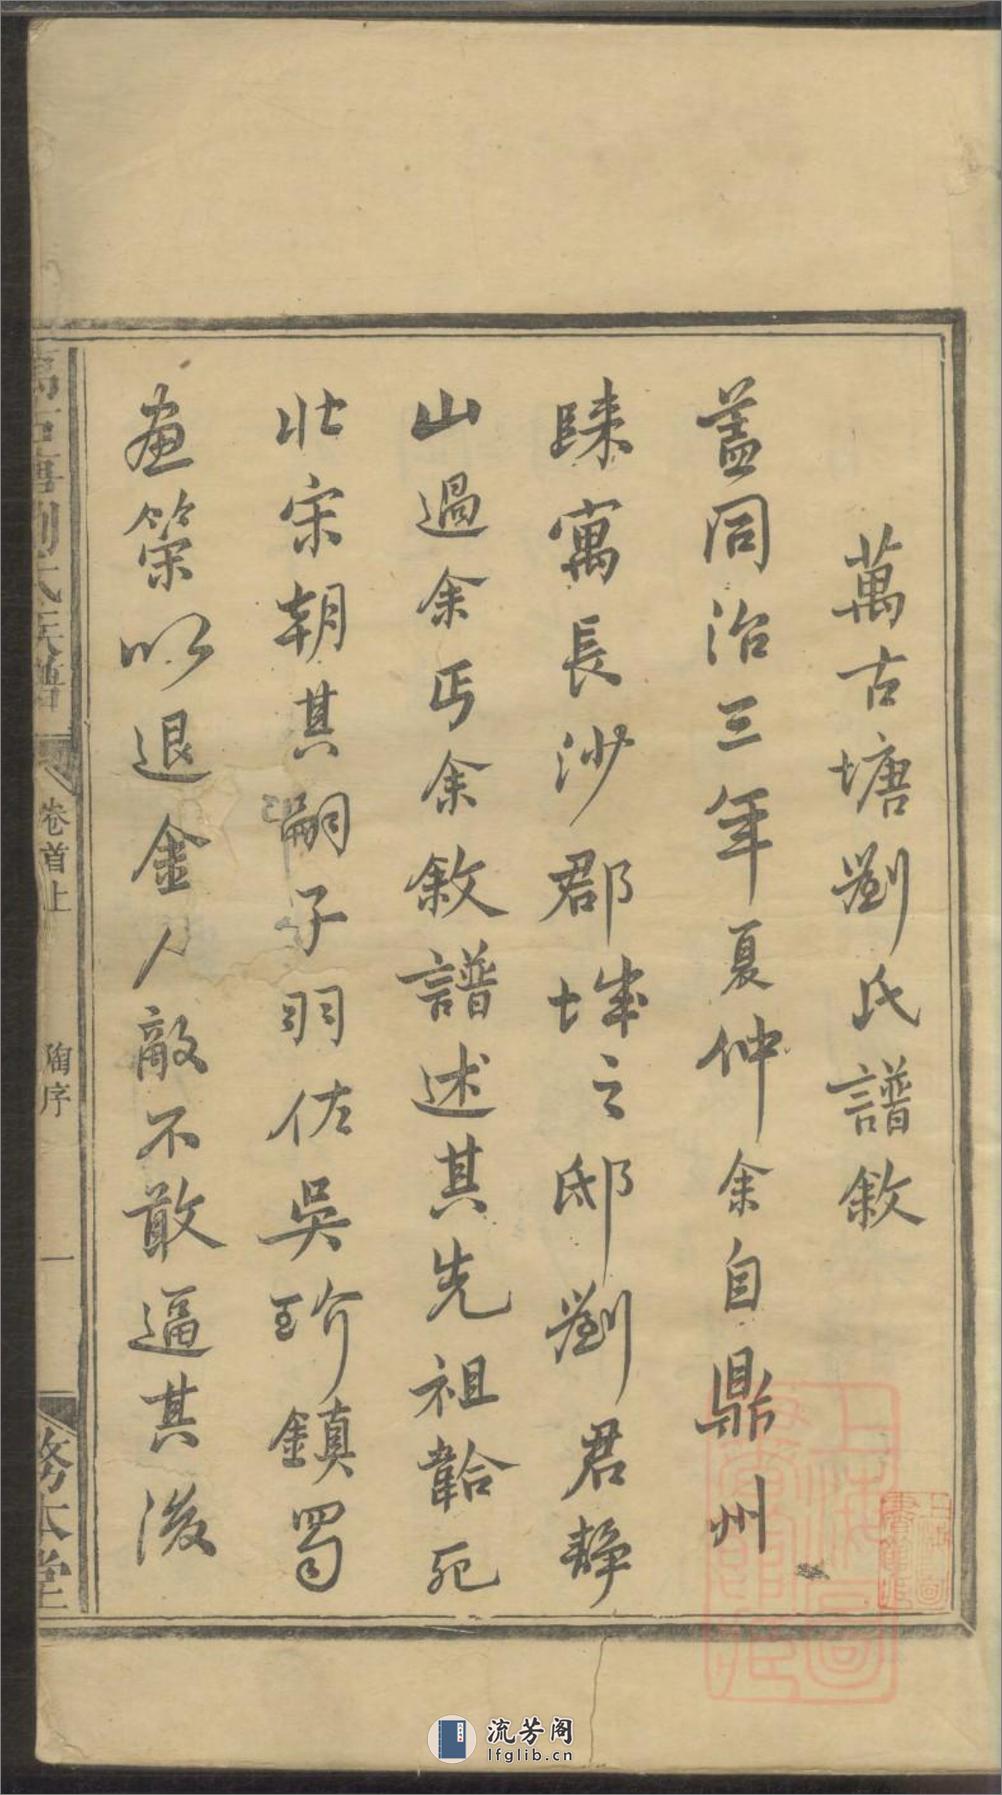 萬古塘劉氏譜敘
蓋同治三年夏仲余自鼎州
歸寓長沙郡城之邸劉君靜
山過余丐余敘譜述其先祖韐死
北宋朝其嗣子羽佐吳玠鎮蜀
畫策以退金人敵不敢逼其後
劉氏族譜
卷首上
陶序
一
務本堂
流芳阁
lfglib.cn